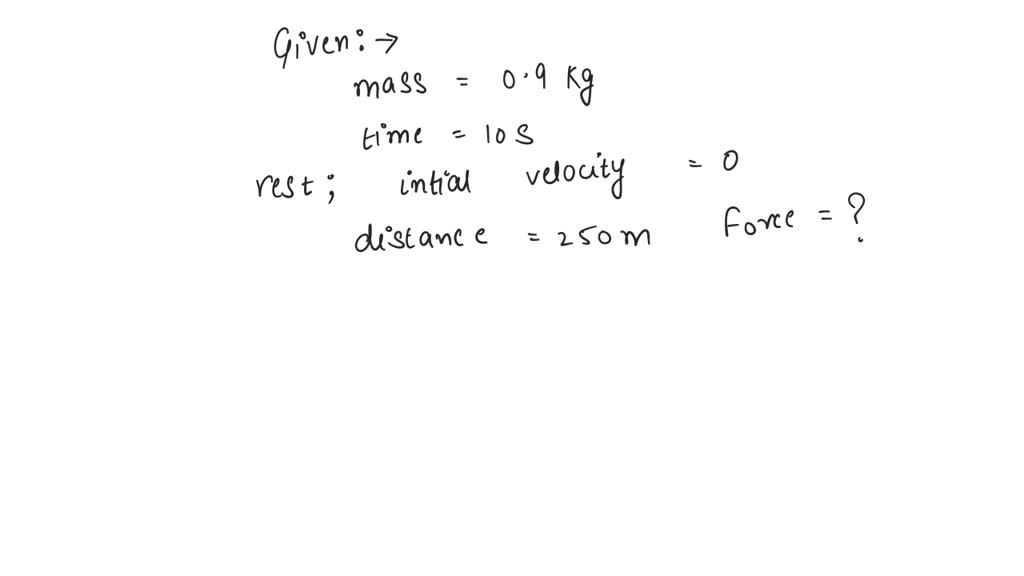 Given: →
mass = 0.9 Kg
time = 10 S
rest; intial velocity = 0
distance = 250 m Force = ?